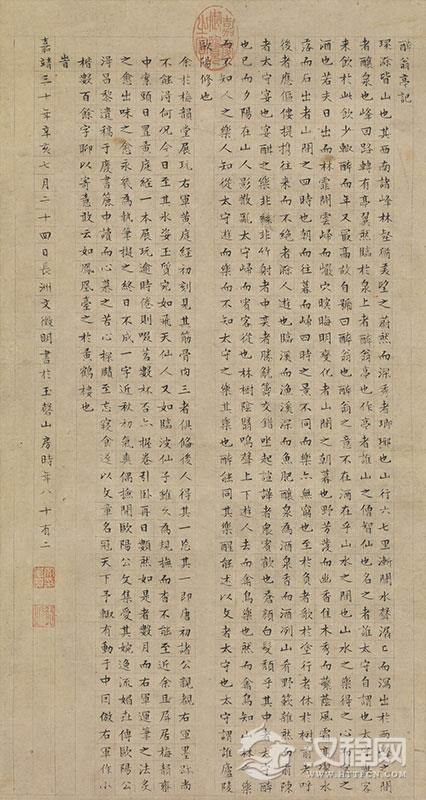 醉翁亭記
環滁皆山也其西南諸峰林壑猶美望之蔚然而深秀者瑯琊也山行六七里漸聞水聲潺潺而瀉出於兩峰之間
者釀泉也峰回路轉有亭翼然臨於泉上者醉翁亭也作亭者誰山之僧智仙也名之者誰太守自謂也太守與客
來飲於此飲少輒醉而年又最高故自號曰醉翁也醉翁之意不在酒在乎山水之間也山水之樂得之心而寓之
酒也若夫日出而林霏開雲歸而巖穴暝晦明變化者山間之朝暮也野芳發而幽香佳木秀而繁陰風霜高潔水
落而石出者山間之四時也朝而往暮而歸四時之景不同而樂亦無窮也至於負者歌於塗行者休於樹前者呼
後者應傴僂提攜往來而不絕者滁人遊也臨溪而漁溪深而魚肥釀泉為酒泉香而酒冽山肴野蔌雜然而前陳
者太守宴也宴酣之樂非絲非竹射者中奕者勝觥籌交錯坐起諠譁者衆賓歡也蒼顏白髮頹乎其中者太守醉
也已而夕陽在山人影散亂太守歸而賓客從也樹林陰翳鳴聲上下遊人去而禽鳥樂也然而禽鳥知山林之樂
而不知人之樂人知從太守遊而樂而不知太守之樂其樂也醉能同其樂醒能述以文者太守也太守謂誰廬陵
歐陽修也
余於梅韻堂展玩右軍黃庭經初刻見其筋骨肉三者俱備後人得其一忘其一即唐初諸公親覩右軍墨跡尚
不能得何況今日至其水姿玉質宛如飛天仙人又如臨波仙子雖久為規橅而杳不能至近余且屏居梅韻齋
中窻頭日置黃庭經一本展玩逾時倦則啜茗數杯否亦握卷引臥再日數然如是者數月而右軍運筆之法炙
之愈出味之愈永幾為執筆擬之終日不成一字近秋初氣爽偶撿開歐陽公文集愛其婉逸流媚傳歐陽公
得昌黎遺稿于廢書簏中讀而心慕之苦心探賾至忘寢食遂以文章名冠天下予輒有動于中因倣右軍作小
楷數百餘字聊以寄意敢云如鳳凰臺之於黃鶴樓也
旹
嘉靖三十年辛亥七月二十四日長洲文徵明書於玉磬山房時年八十有二
HTTPCN.COM